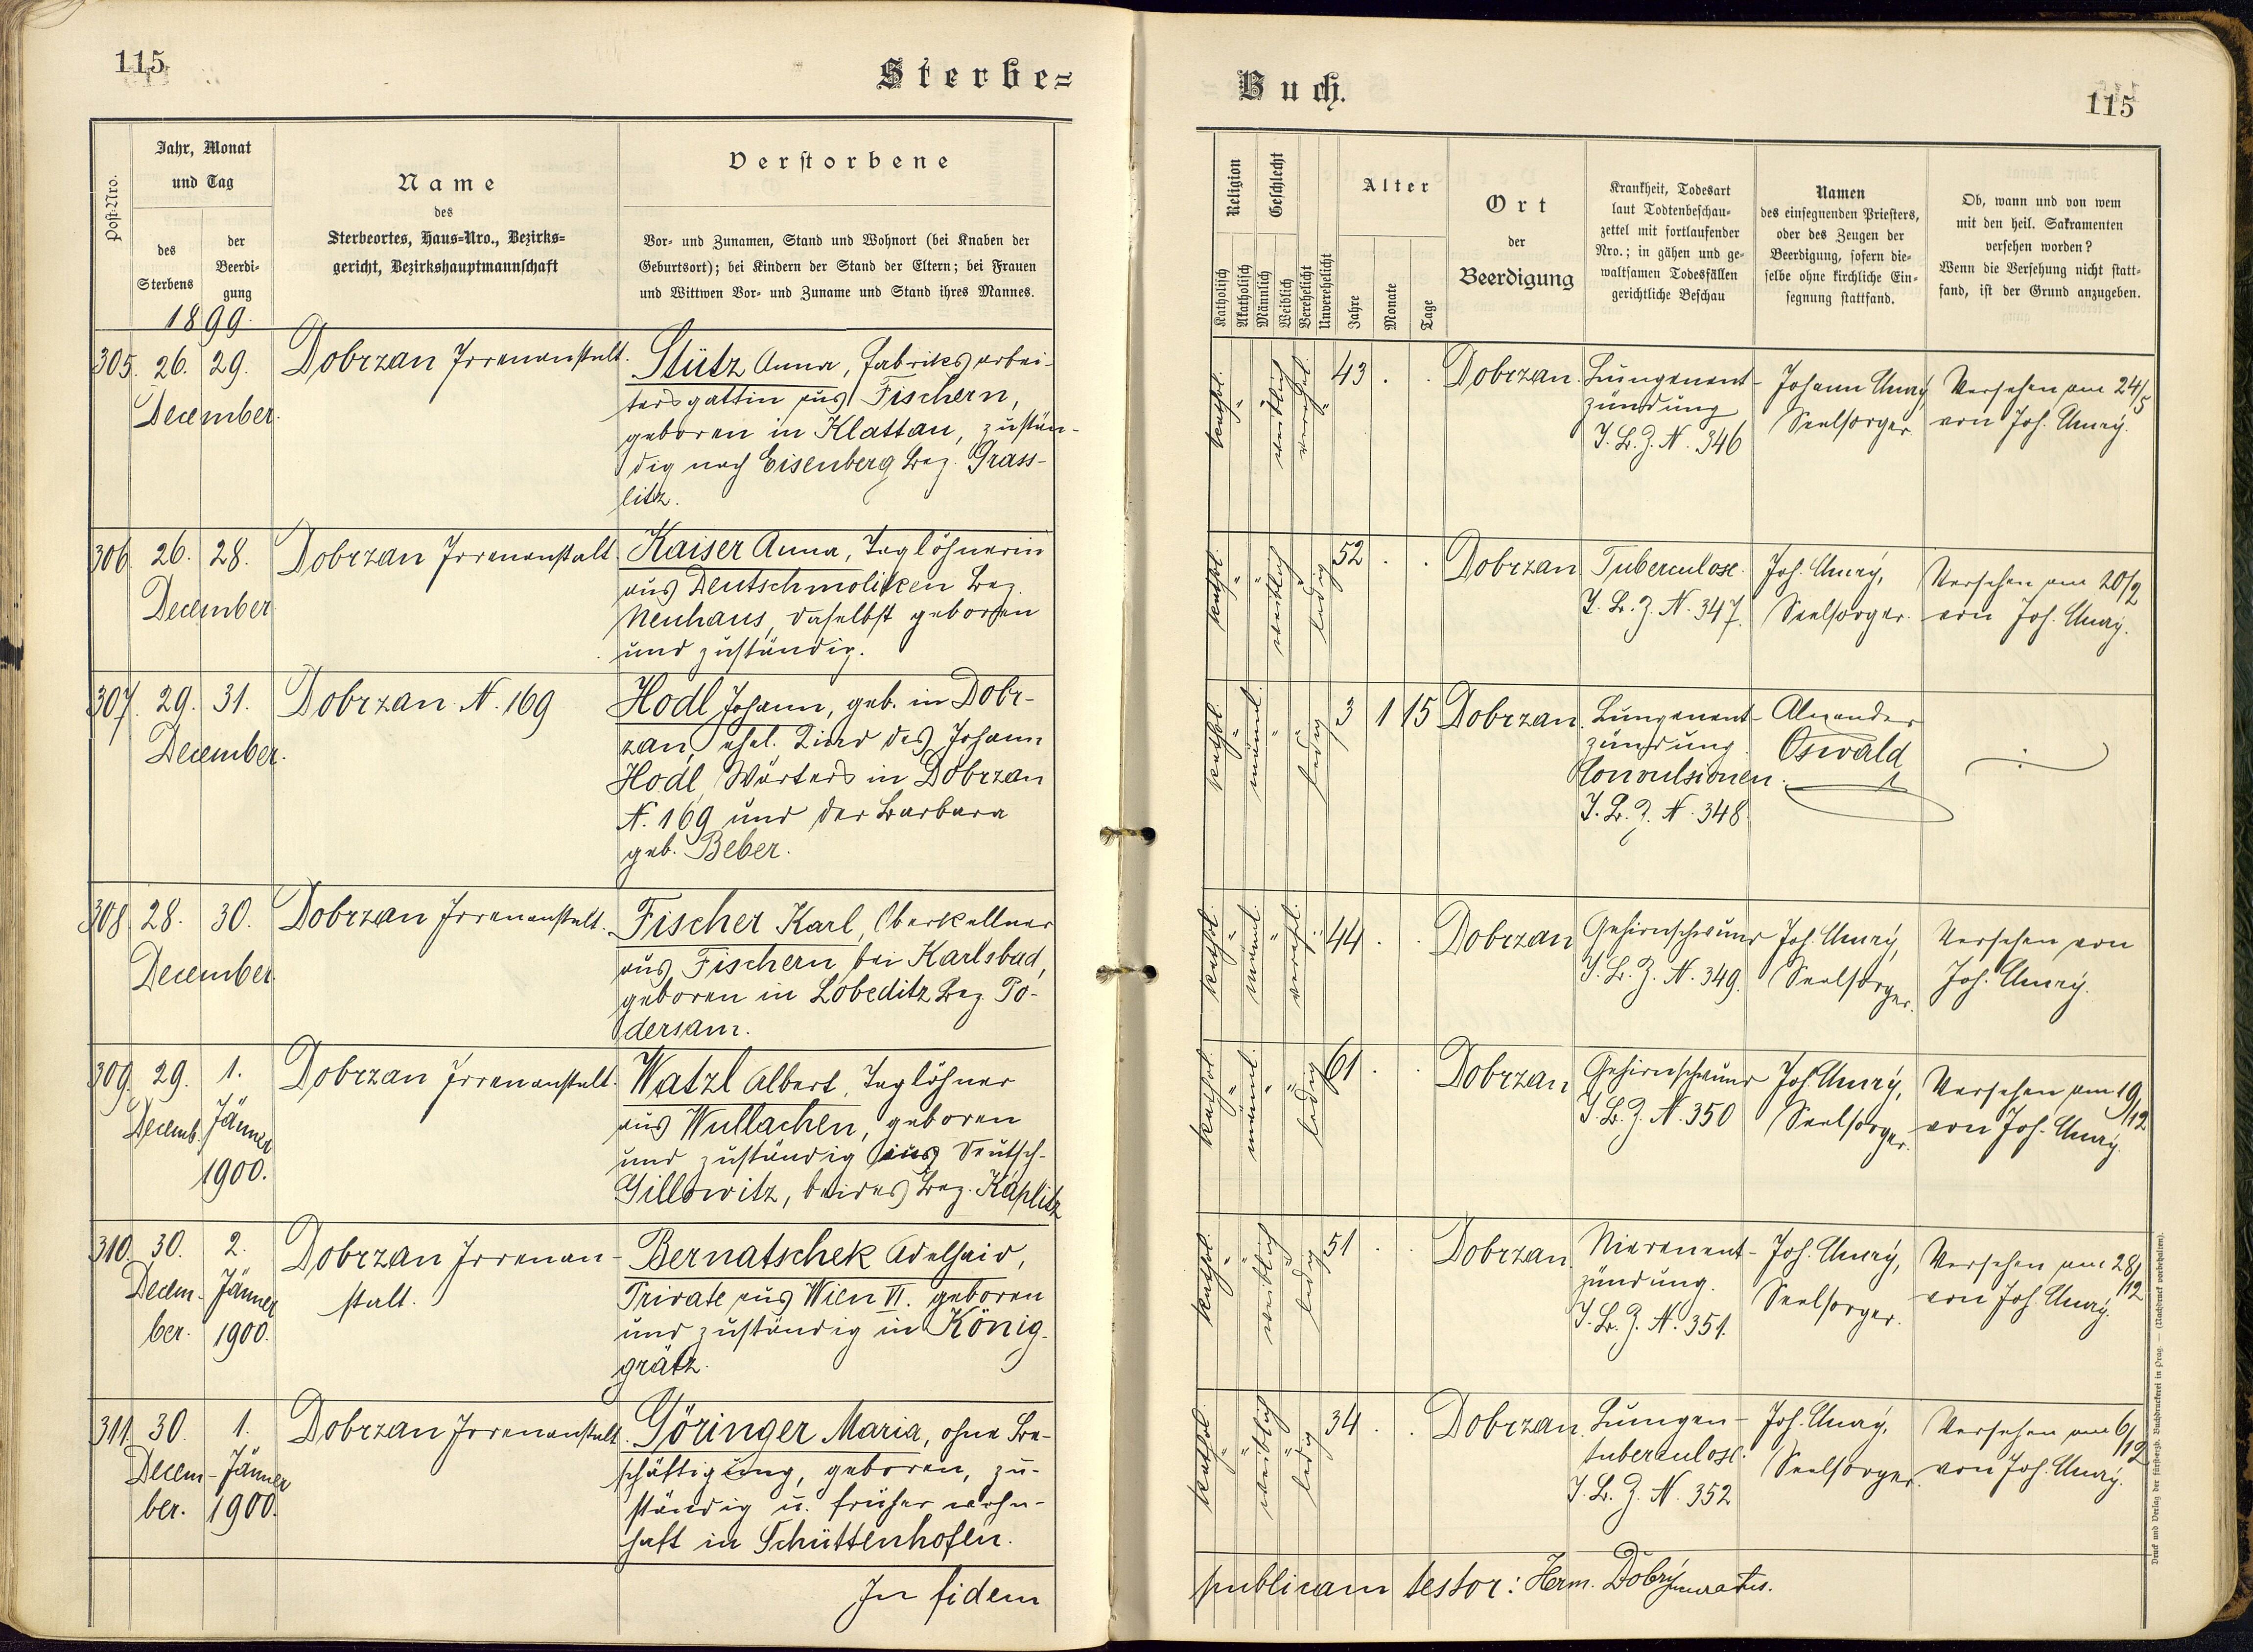 115
Sterbe=
Post-Nro.
Jahr, Monat
und Tag
des
Sterbens
der
Beerdi-
gung
1899.
Name
des
Sterbeortes, Haus-Nro., Bezirks-
gericht, Bezirkshauptmannschaft
Verstorbene
Vor- und Zunamen, Stand und Wohnort (bei Knaben der
Geburtsort); bei Kindern der Stand der Eltern; bei Frauen
und Wittwen Vor- und Zuname und Stand ihres Mannes.
305. 26. 29. Dobrzan Irrenanstalt. Stütz Anna, Fabriksarbei-
December. tersgattin aus Fischern,
geboren in Klattau, zustän-
dig nach Eisenberg Bez. Grass-
litz.
306 26. 28. Dobrzan Irrenanstalt Kaiser Anna, Taglöhnerin
December aus Deutschmoliken Bez.
Neuhaus, daselbst geboren
und zuständig.
307. 29. 31. Dobrzan N. 169 Hodl Johann, geb. in Dobr-
December. zan, ehel. Kind des Johann
Hodl, Wärters in Dobrzan
N. 169 und der Barbara
geb. Beber.
308 28. 30. Dobrzan Irrenanstalt. Fischer Karl, Oberkellner
December. aus Fischern bei Karlsbad,
geboren in Lobeditz Bez. Po-
dersam.
309. 29. 1. Dobrzan Irrenanstalt. Watzl Albert, Taglöhner
Decemb. Jänner aus Wullachen, geboren
1900. und zuständig aus Deutsch-
Gillowitz, beides Bez. Kaplitz
310. 30. 2. Dobrzan Irrenan- Bernatschek Adelhaid,
Decem- Jänner stalt. Private aus Wien VI. geboren
ber. 1900. und zuständig in König-
grätz.
311. 30. 1. Dobrzan Irrenanstalt. Göringer Maria, ohne Be-
Decem- Jänner schäftigung, geboren, zu-
ber. 1900. ständig u. früher wohn-
haft in Schüttenhofen.
In fidem
Buch.
115
Religion
Katholisch
Akatholisch
Geschlecht
Männlich
Weiblich
Verehelicht
Unverehelicht
Alter
Jahre
Monate
Tage
Ort
der
Beerdigung
Krankheit, Todesart
laut Todtenbeschau-
zettel mit fortlaufender
Nro.; in gähen und ge-
waltsamen Todesfällen
gerichtliche Beschau
Namen
des einsegnenden Priesters,
oder des Zeugen der
Beerdigung, sofern die-
selbe ohne kirchliche Ein-
segnung stattfand.
Ob, wann und von wem
mit den heil. Sakramenten
versehen worden?
Wenn die Versehung nicht statt-
fand, ist der Grund anzugeben.
kathol. weiblich verehel. 43 . . Dobrzan. Lungenent- Johann Versehen am 24/5
zündung Seelsorger. von Joh.
T. B. Z. N. 346
kathol. weiblich ledig 52 . . Dobrzan Tuberculose. Joh. Versehen am 20/2
T. B. Z. N. 347. Seelsorger. von Joh.
kathol. männl. ledig 3 1 15 Dobrzan. Lungenent-
zündung. Oswald
Convulsionen.
T. B. Z. N. 348.
kathol. männl. verehel. 44 . . Dobrzan Gehirnschwund Joh. Versehen von
T. B. Z. N. 349. Seelsorger. Joh.
kathol. männl. ledig 61 . . Dobrzan Gehirnschwund Joh. Versehen am 19/12
T. B. Z. N. 350 Seelsorger. von Joh.
kathol. weiblich ledig 51 . . Dobrzan Nierenent- Joh. Versehen am 28/12
zündung. Seelsorger. von Joh.
T. B. Z. N. 351.
kathol. weiblich ledig 34 . . Dobrzan Lungen- Joh. Versehen am 6/12
tuberculose. Seelsorger. von Joh.
T. B. Z. N. 352
publicam testor: Herm. Dobrý
Druck und Verlag der fürsterzb. Buchdruckerei in Prag. — (Nachdruck vorbehalten).